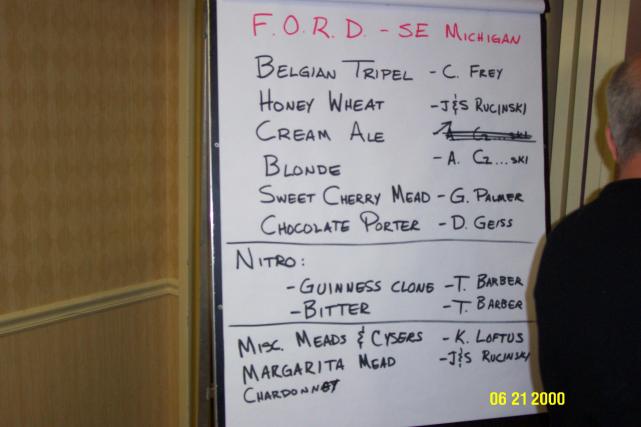 F.O.R.D. - SE MICHIGAN
BELGIAN TRIPEL - C. FREY
HONEY WHEAT - J&S RUCINSKI
CREAM ALE
BLONDE - A. CZ...SKI
SWEET CHERRY MEAD - G. PALMER
CHOCOLATE PORTER - D. GEISS
NITRO:
- GUINNESS CLONE - T. BARBER
- BITTER - T. BARBER
MISC. MEADS & CYSERS - K. LOFTUS
MARGARITA MEAD - J&S RUCINSKI
CHARDONNAY
06 21 2000